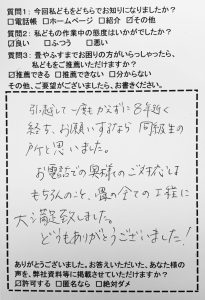 質問1:今回私どもをどちらでお知りになりましたか?
□電話帳 □ホームページ □紹介 ☑その他
質問2:私どもの作業中の態度はいかがでしたか?
☑良い □ふつう □悪い
質問3:畳やふすまでお困りの方がいらっしゃったら、
私どもをご推薦いただけますか?
☑推薦できる □推薦できない □分からない
その他、ご要望がございましたら、お書きください。
引越して一度もかえずに8年近く
経ち、お願いするなら同級生の
所と思いました。
お電話での奥様のご対応は
もちろんのこと、畳の全ての工程に
大満足致しました。
どうもありがとうございました!
ありがとうございました。お答えいただいた、あなた様の
声を、弊社資料等に掲載させていただけますか?
☑許可する □匿名なら □絶対ダメ